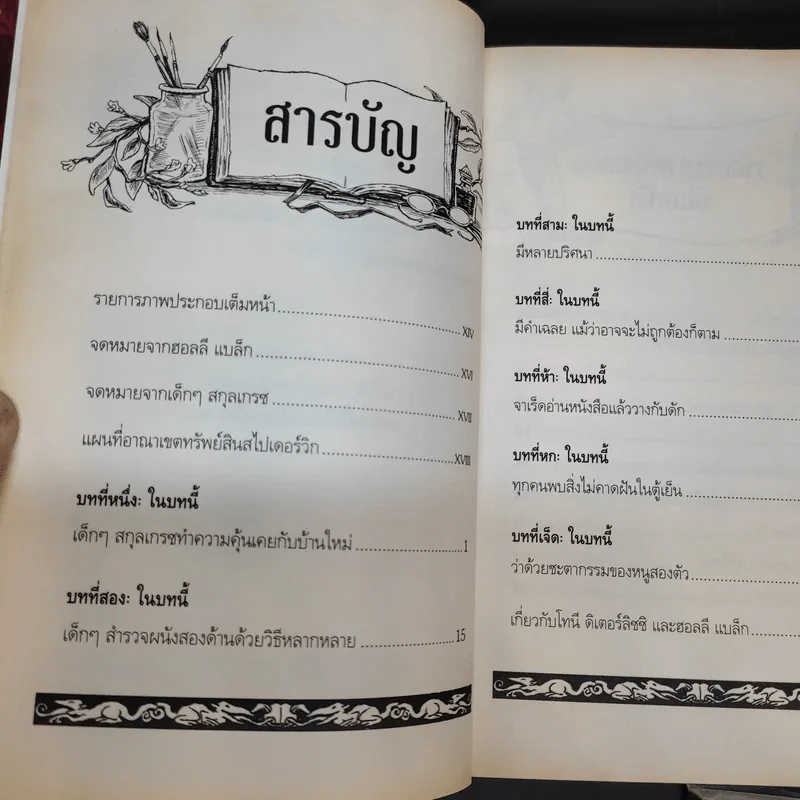 สารบัญ
รายการภาพประกอบเต็มหน้า..............................XIV
จดหมายจากฮอลลี แบล็ก..............................XVI
จดหมายจากเด็กๆ สกุลเกรซ..............................XVII
แผนที่อาณาเขตทรัพย์สินสไปเดอร์วิก..............................XVIII
บทที่หนึ่ง: ในบทนี้
เด็กๆ สกุลเกรซทำความคุ้นเคยกับบ้านใหม่..............................1
บทที่สอง: ในบทนี้
เด็กๆ สำรวจผนังสองด้านด้วยวิธีหลากหลาย..............................15
บทที่สาม: ในบทนี้
มีหลายปริศนา..............................
บทที่สี่: ในบทนี้
มีคำเฉลย แม้ว่าอาจจะไม่ถูกต้องก็ตาม..............................
บทที่ห้า: ในบทนี้
จาเร็ดอ่านหนังสือแล้ววางกับดัก..............................
บทที่หก: ในบทนี้
ทุกคนพบสิ่งไม่คาดฝันในตู้เย็น..............................
บทที่เจ็ด: ในบทนี้
ว่าด้วยชะตากรรมของหนูสองตัว..............................
เกี่ยวกับโทนี ดิเตอร์ลิซซี และฮอลลี แบล็ก..............................